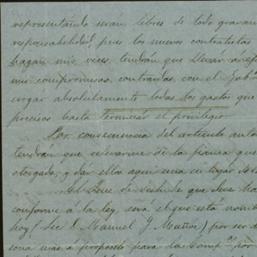 representando seran libres de todo gravam
responsabilidad, pues los nuevos contratistas
hagan mis veces, tendran que llevar
mis compromisos, contraidos, con el Gob
erogar absolutamente todos los gastos que
precisos hasta terminar el privilegio
Por consecuencia del articulo ante
tendran que relevarme de la fianza que
otorgada, y dar ellos aqui una en lugar de
El Juez de que deve ha
conforme á la ley, será el que está nom
hoy (Lic. D. Manuel G. Muñoz) por ser
sona mas á proposito para la Comp.ª por